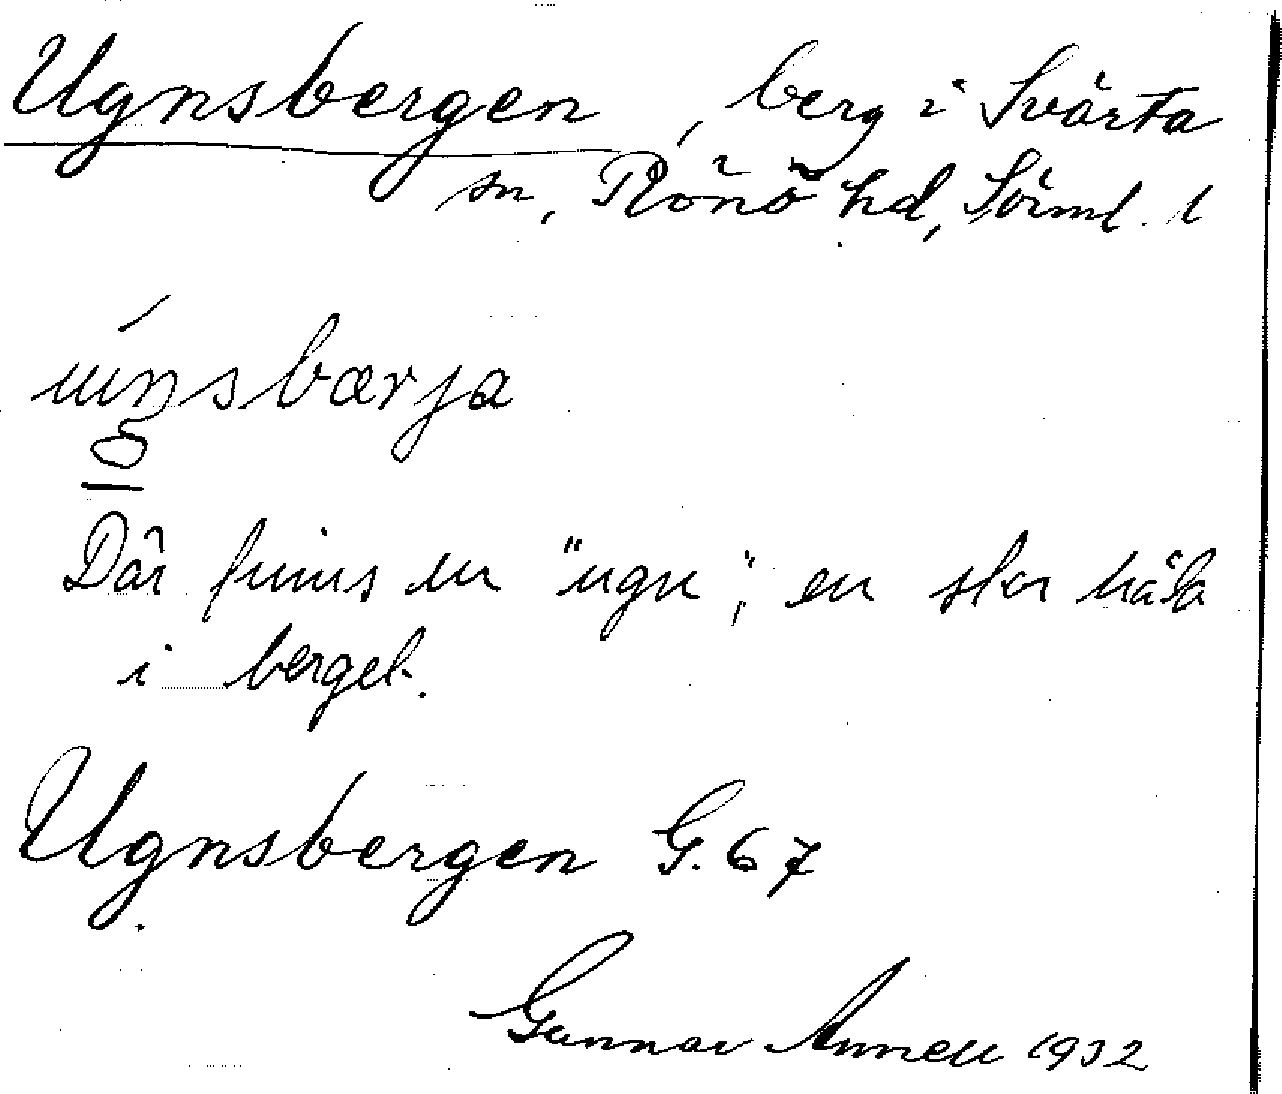 Ugnsbergen, berg i Svärta
sn, Rönö hd, Sörml. l
Där finns en "ugn", en stor håla
i berget.
Ugnsbergen G. 67
Gunnar Annell 1932